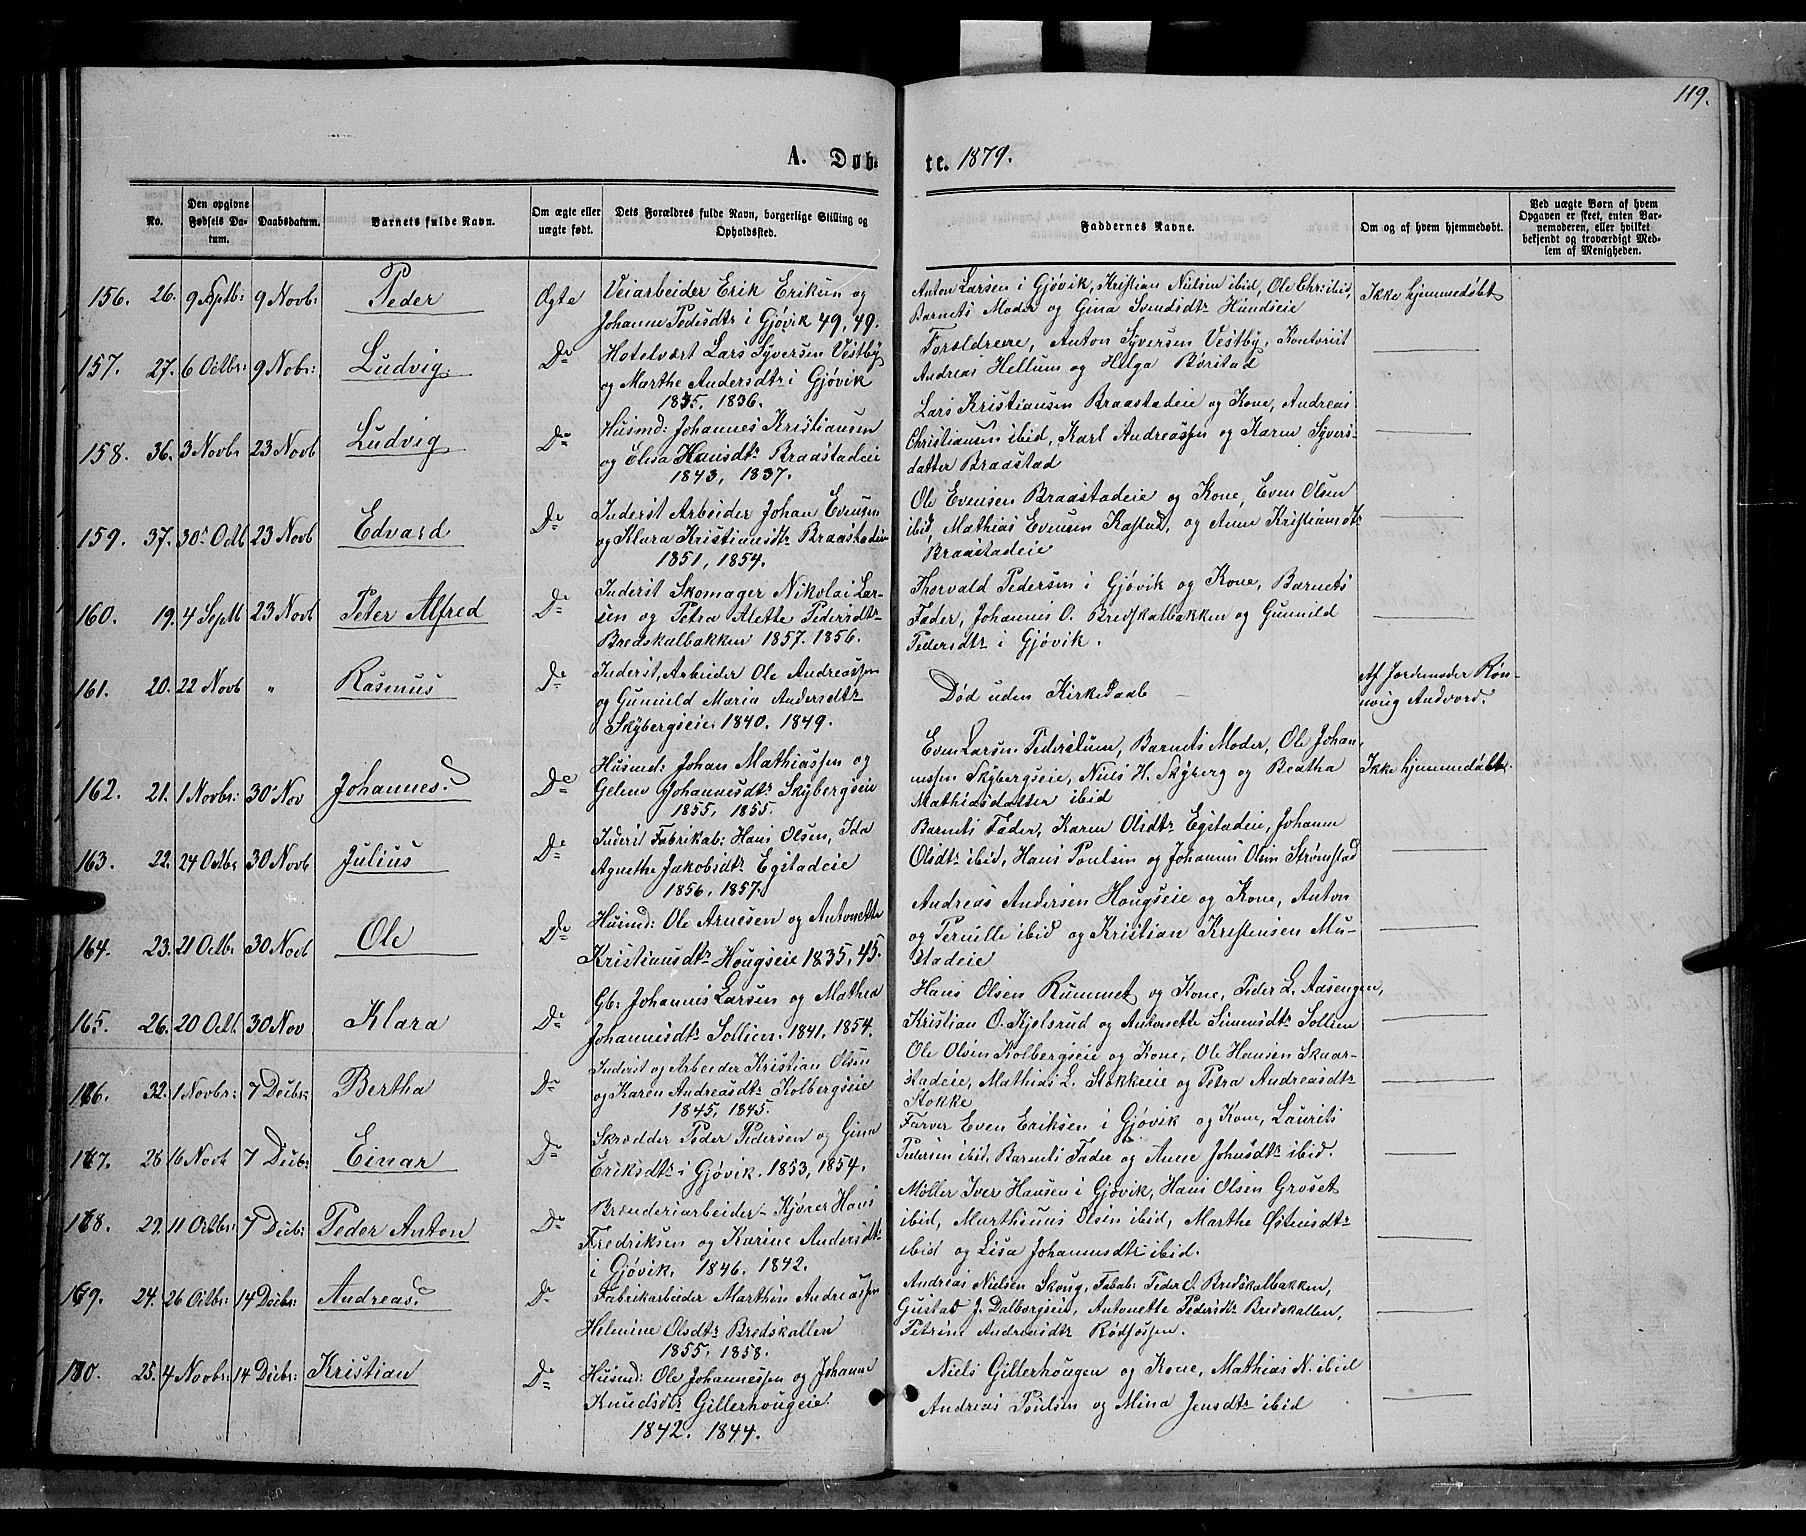 119.
A. Døbte. 1879.
No.
Den opgivne Fødsels Datum.
Daabsdatum.
Barnets fulde Navn.
Om ægte eller uægte født.
Dets Forældres fulde Navn, borgerlige Stilling og Opholdssted.
Faddernes Navne.
Om og af hvem hjemmedøbt.
Ved uægte Børn af hvem Opgaven er skeet, enten Barnemoderen, eller hvilket bekjendt og troværdigt Medlem af Menigheden.
156. 26. 9 Septb: 9 Novb: Peder Ægte
Veiarbeider Erik Eriksen og
Johanne Pedersdtr i Gjøvik 49, 49.
Anton Larsen i Gjøvik, Kristian Nielsen ibid, Ole Chr: ibid,
Barnets Moder og Gina Svendsdtr Hundseie
Ikke hjemmedøbt
157. 27. 6 Octbr: 9 Nobr: Ludvig. Do
Hotelvært Lars Syversen Vestby
og Marthe Andersdtr i Gjøvik
1835, 1836.
Forældrene, Anton Syversen Vestby, Kontorist
Andreas Hellum og Helga Børstad
158. 36. 3 Novbr 23 Novb Ludvig Do
Husmd: Johannes Kristiansen
og Elisa Hansdtr Braastadeie
1843, 1837.
Lars Kristiansen Braastadeie og Kone, Andreas
Christiansen ibid, Karl Andreassen og Karen Syvers-
datter Braastad
159. 37. 30 Octb 23 Novb Edvard Do
Inderst Arbeider Johan Evensen
og Klara Kristiansdtr Braastadeie
1851, 1854.
Ole Evensen Braastadeie og Kone, Even Olsen
ibid, Mathias Evensen Kastad, og Anne Kristiansdtr
Braastadeie
160. 19. 4 Septb 23 Novb Peter Alfred Do
Inderst Skomager Nikolai Lar-
sen og Petra Alette Pedersdtr
Bredskalbakken 1857. 1856.
Thorvald Pedersen i Gjøvik og Kone, Barnets
Fader, Johannes O. Bredskalbakken og Gunnild
Pedersdtr i Gjøvik.
161. 20. 22 Novb " Rasmus Do
Inderst, Arbeider Ole Andreassen
og Gunnild Maria Andersdtr
Skybergseie 1840. 1849.
Død uden Kirkedaab
Af Jordemoder Røn-
naug Andvord.
162. 21. 1 Novbr: 30 Nov Johannes. Do
Husmd: Johan Mathiassen og
Geline Johannesdtr Skybergseie
1855, 1855.
Even Larsen Pederstuen, Barnets Moder, Ole Johan-
nessen Skybergseie, Niels H. Skyberg og Beatha
Mathiasdatter ibid
Ikke hjemmedøbt
163. 22. 24 Octbr 30 Novb Julius Do
Inderst Fabrikab: Hans Olsen, Ida
Agnethe Jakobsdtr Egstadeie
1856, 1857.
Barnets Fader, Karen Olsdtr Egstadeie, Johanne
Olsdtr ibid, Hans Poulsen og Johannes Olsen Strømstad
164. 23. 21 Octbr: 30 Novb Ole Do
Husmd: Ole Arnesen og Antonette
Kristiansdtr Hougseie 1835, 45.
Andreas Andersen Hougseie og Kone, Anton
og Pernille ibid og Kristian Kristensen Mu-
stadeie
165. 26. 20 Octb. 30 Nov Klara Do
Gb: Johannes Larsen og Mathea
Johannesdtr Sollien. 1841. 1854.
Hans Olsen Rummet og Kone, Peder L. Aasengen,
Kristian O. Kjelsrud og Antonette Simensdtr Sollien
166. 32. 1 Novbr: 7 Decbr: Bertha Do
Inderst og Arbeider Kristian Olsen
og Karen Andreasdtr Kolbergseie
1845, 1845.
Ole Olsen Kolbergseie og Kone, Ole Hansen Skaar-
stadeie, Mathias L. Stokkeie og Petra Andreasdtr
Stokke
167. 28. 16 Novb 7 Decbr: Einar Do
Skrædder Peder Pedersen og Gina
Eriksdtr i Gjøvik. 1853, 1854.
Farver Even Eriksen i Gjøvik og Kone, Laurits
Pedersen ibid, Barnets Fader og Anne Johnsdtr ibid.
168. 29. 11 Octbr: 7 Decbr: Peder Anton Do
Brænderiarbeider Kjører Hans
Fredriksen og Karine Andersdtr
i Gjøvik. 1846. 1842.
Møller Iver Hansen i Gjøvik, Hans Olsen Groset
ibid, Marthinus Olsen ibid, Marthe Østensdtr
ibid og Lisa Johannesdtr ibid.
169. 24. 26 Octbr: 14 Decbr: Andreas. Do
Fabrikarbeider Marthin Andreassen
Helmine Olsdtr Bredskallen
1855, 1858.
Andreas Nielsen Skoug, Fabab: Peder O. Bredskalbakken,
Gustav J. Dalborgseie, Antonette Pedersdtr Bredskallen,
Petrine Andreasdtr Rødfossen.
170. 25. 4 Novbr: 14 Decbr: Kristian Do
Husmd: Ole Johannessen og Johanne
Knudsdtr Gillerhougeie
1842. 1844.
Niels Gillerhougen og Kone, Mathias N. ibid
Andreas Poulsen og Mina Jensdtr ibid